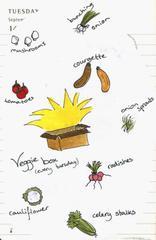 TUESDAY
bunching
onion
mushrooms
courgette
tomatoes
onion
sprouts
Veggie box
(every tuesday)
radishes
cauliflower
celery stalks